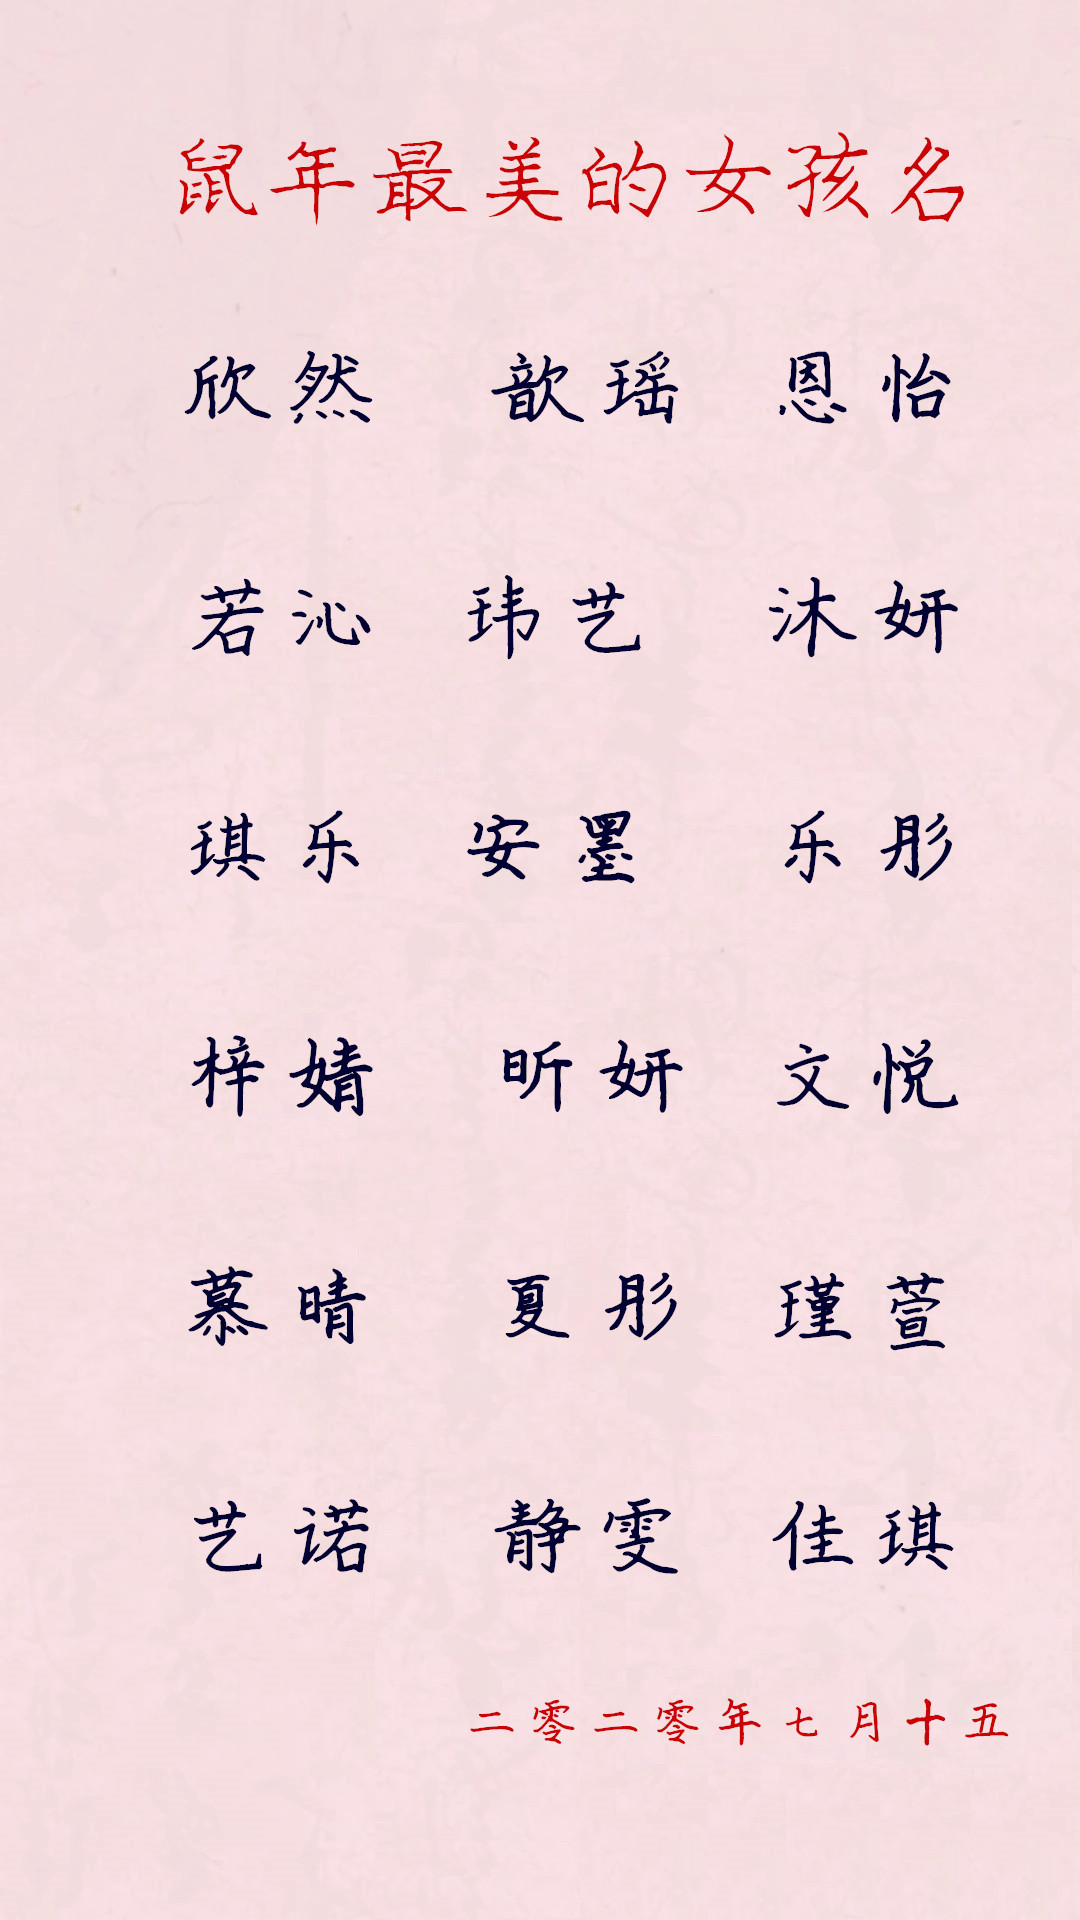 鼠年最美的女孩名
欣然 歆瑶 恩怡
若沁 玮艺 沐妍
琪乐 安墨 乐彤
梓婧 昕妍 文悦
慕晴 夏彤 瑾萱
艺诺 静雯 佳琪
二零二零年七月十五